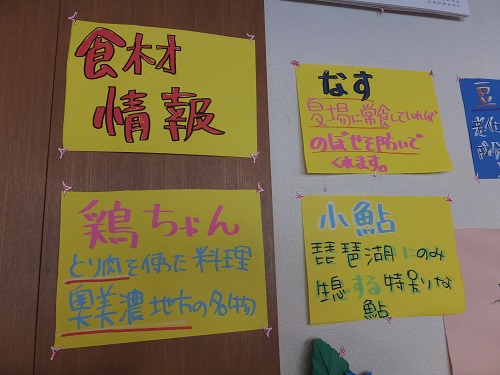 食材
情報
なす
夏場に常食していれば
のぼせを防いで
くれます。
鶏ちゃん
とり肉を使った料理
奥美濃地方の名物
小鮎
琵琶湖にのみ
生息する特別な
鮎
豆